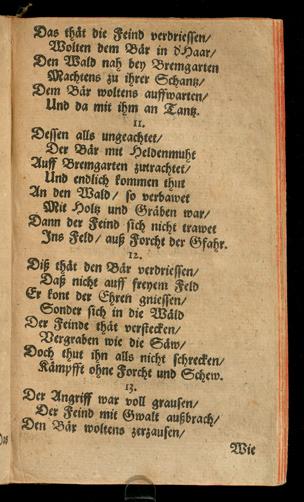 Das thät die Feind verdriessen/
Wolten dem Bär in d'Haar/
Den Wald nah bey Bremgarten
Machtens zu ihrer Schantz/
Dem Bär woltens auffwarten/
Und da mit ihm an Tantz.
11.
Dessen alls ungeachtet/
Der Bär mit Heldenmuht
Auff Bremgarten zutrachtet/
Und endlich kommen thut
An den Wald/ so verbawet
Mit Holtz und Gräben war/
Dann der Feind sich nicht trawet
Ins Feld/ auß Forcht der Gfahr.
12.
Diß thät den Bär verdriessen/
Daß nicht auff freyem Feld
Er kont der Ehren gniessen/
Sonder sich in die Wäld
Der Feinde thät verstecken/
Vergraben wie die Säw/
Doch thut ihn alls nicht schrecken/
Kämpfft ohne Forcht und Schew.
13.
Der Angriff war voll grausen/
Der Feind mit Gwalt außbrach/
Den Bär woltens zerzausen/
Wie